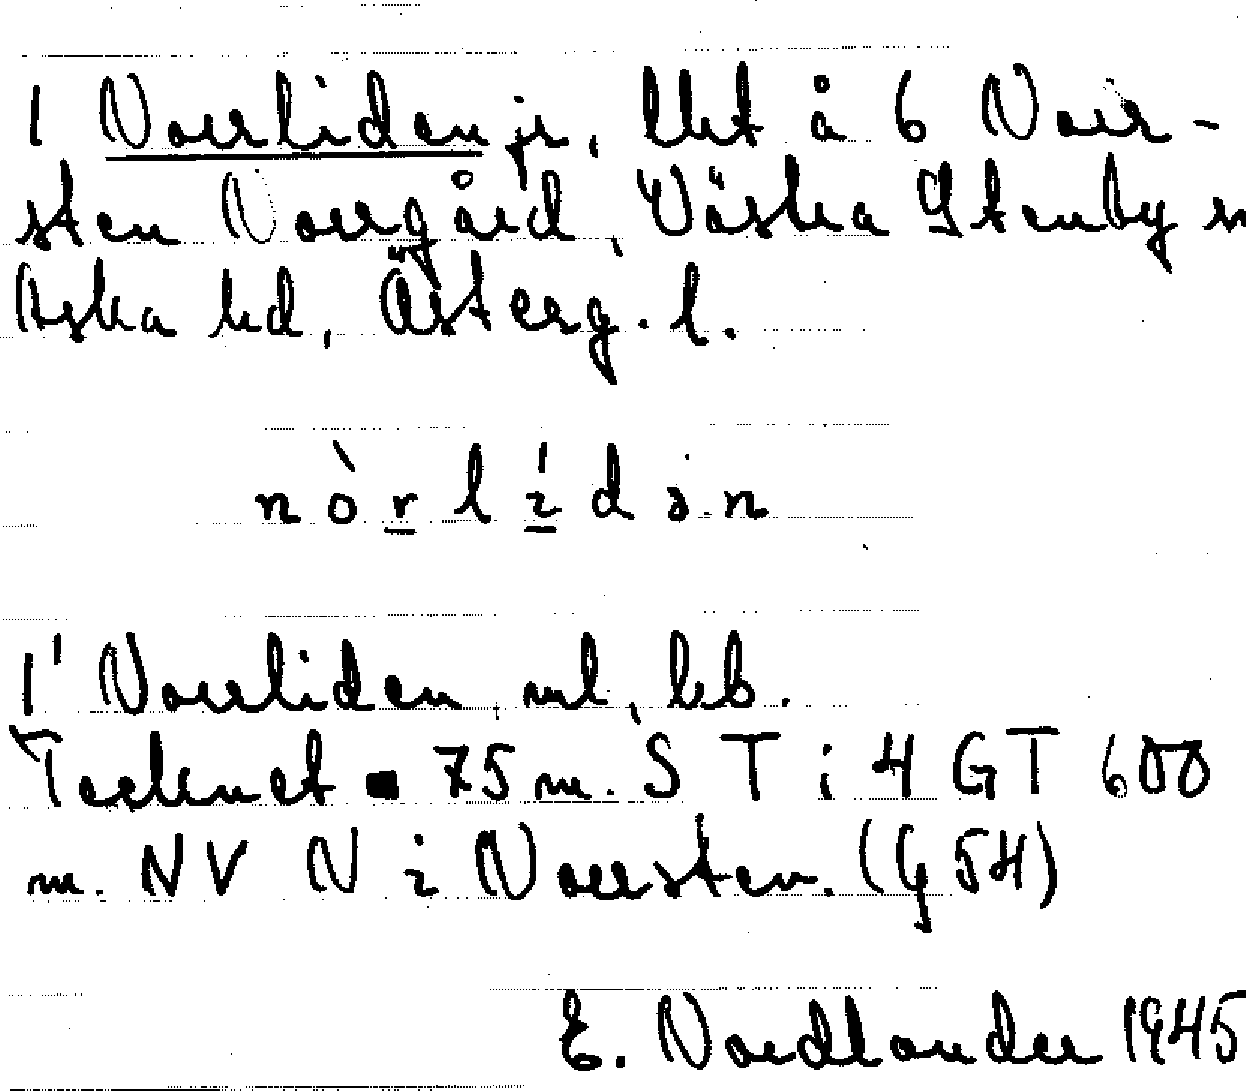 1 Norrliden, jr, lht å 6 Norr-
sten Norrgård, Västra Stenby sn
Aska hd, Österg. l.
nòrlídən
1' Norrliden, ml, bb.
Tecknet ▪ 75 m. S T i 4 GT 600
m. NV N i Norrsten. (G 54)
E. Nordlander 1945